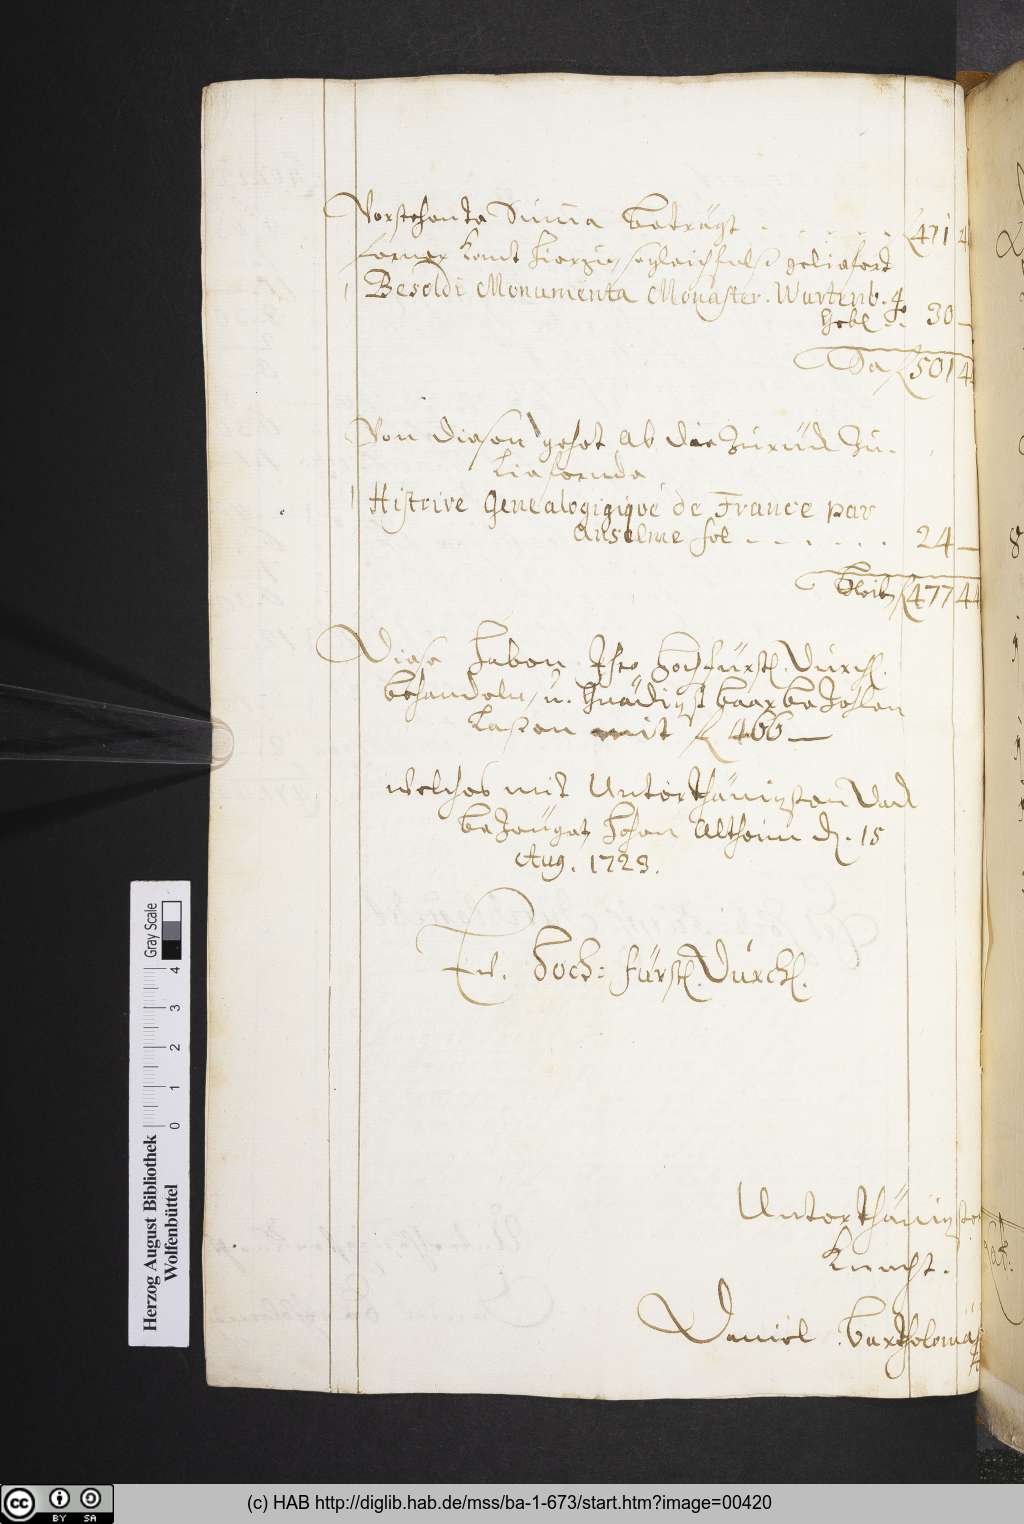 Vorstehente Summa beträgt . . . . . . f 471 4
ferner komt hierzu, so gleichfalß geliefert
1 Besoldi Monumenta Monaster. Wurtenb. 4o
gebl . . 30 —
Sa f 501 44
Von diesen gehet ab die Zurück zu-
lieferende
1 Histoire Genealogigique de France par
Anselme fol - - . - . . 24 —
bleibt f 477 44
Diese haben Ihro Hochfürstl. Durchl.
behandeln, u. gnädigst baar bezahlen
laßen mit f 466 —
welches mit Unterthänigsten Danck
bezeuget Hohen Altheim d. 15
Aug. 1723.
Ew. Hoch: fürstl. Durchl.
Unterthänigster
Knecht.
Daniel Bartholomäi
Herzog August Bibliothek
Wolfenbüttel
0 1 2 3 4
Gray Scale
cc BY SA
(c) HAB http://diglib.hab.de/mss/ba-1-673/start.htm?image=00420